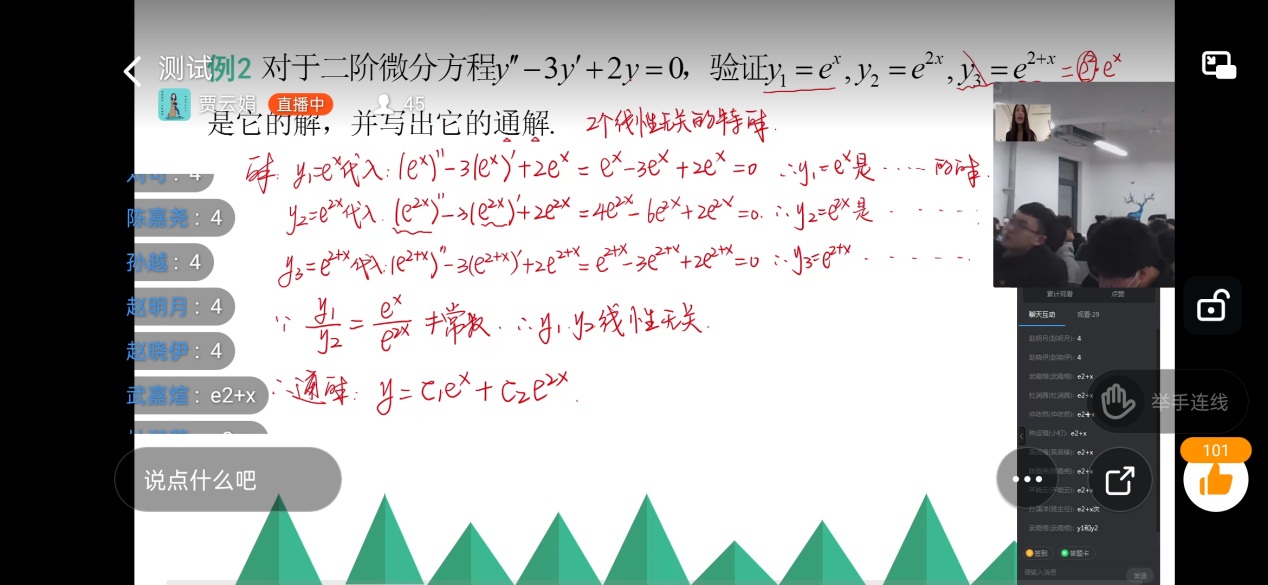 测试例2 对于二阶微分方程y″−3y′+2y=0，验证y₁=eˣ,y₂=e²ˣ,y₃=e²⁺ˣ=e²·eˣ
贾云娟 直播中 45
是它的解，并写出它的通解. 2个线性无关的特解.
解: y₁=eˣ代入:(eˣ)″−3(eˣ)′+2eˣ=eˣ−3eˣ+2eˣ=0 ∴y₁=eˣ是……的解.
y₂=e²ˣ代入.(e²ˣ)″−3(e²ˣ)′+2e²ˣ=4e²ˣ−6e²ˣ+2e²ˣ=0.∴y₂=e²ˣ是 ……
陈嘉尧: 4
孙越: 4
y₃=e²⁺ˣ代入.(e²⁺ˣ)″−3(e²⁺ˣ)′+2e²⁺ˣ=e²⁺ˣ−3e²⁺ˣ+2e²⁺ˣ=0 ∴y₃=e²⁺ˣ ……
赵明月: 4
∵ y₁/y₂=eˣ/e²ˣ≠常数.∴y₁.y₂线性无关.
赵晓伊: 4
武嘉煊: e2+x
∴通解: y=C₁eˣ+C₂e²ˣ.
说点什么吧
累计观看 点赞
聊天互动 观看·29
赵明月(赵明月): 4
赵晓伊(赵晓伊): 4
e2+x
e2+x
e2+x
e2+x
e2+x
e2+x
e2+x
e2+x
e2+x次
y1和y2
签到 答题卡
请输入消息 发送
举手连线
101